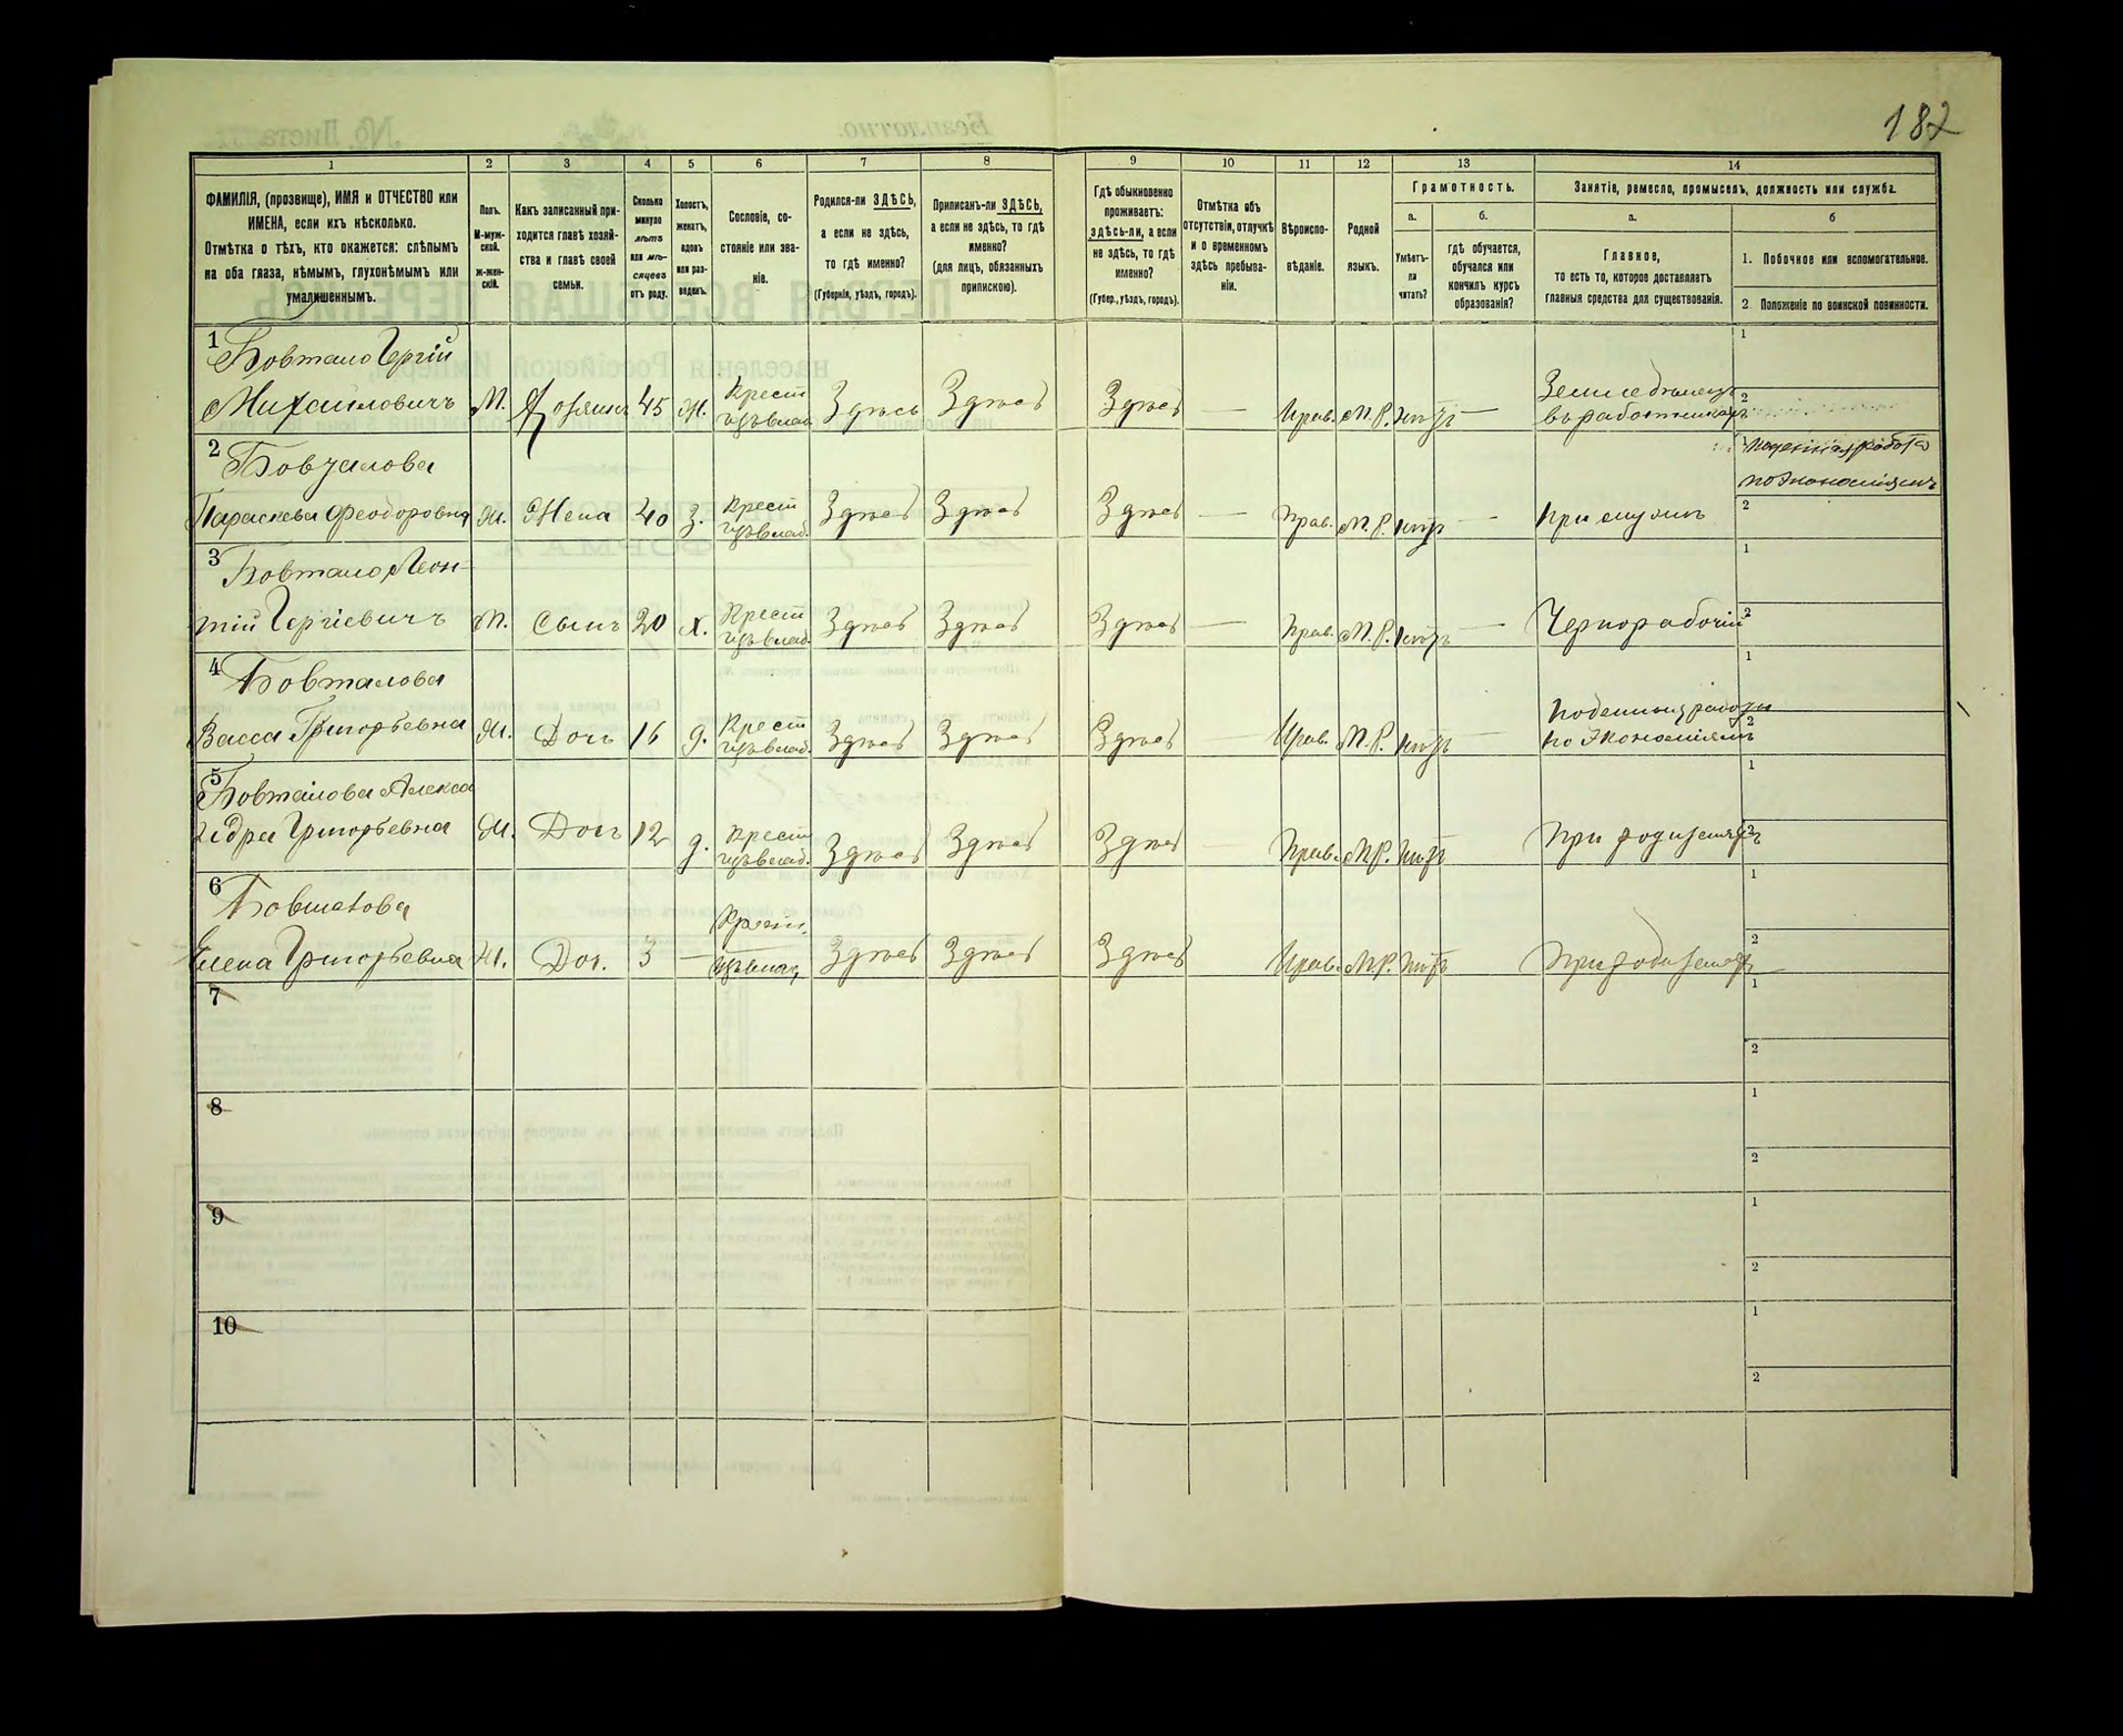 182
1
2
3
4
5
6
7
8
9
10
11
12
13
14
ФАМИЛІЯ, (прозвище), ИМЯ и ОТЧЕСТВО или
ИМЕНА, если ихъ нѣсколько.
Отмѣтка о тѣхъ, кто окажется: слѣпымъ
на оба глаза, нѣмымъ, глухонѣмымъ или
умалишеннымъ.
Полъ.
М-муж-
ской.
ж-жен-
скій.
Какъ записанный при-
ходится главѣ хозяй-
ства и главѣ своей
семьи.
Сколько
минуло
лѣтъ
или мѣ-
сяцевъ
отъ роду.
Холостъ,
женатъ,
вдовъ
или раз-
веденъ.
Сословіе, со-
стояніе или зва-
ніе.
Родился-ли ЗДѢСЬ,
а если не здѣсь,
то гдѣ именно?
(Губернія, уѣздъ, городъ).
Приписанъ-ли ЗДѢСЬ,
а если не здѣсь, то гдѣ
именно?
(для лицъ, обязанныхъ
припискою).
Гдѣ обыкновенно
проживаетъ:
здѣсь-ли, а если
не здѣсь, то гдѣ
именно?
(Губер., уѣздъ, городъ).
Отмѣтка объ
отсутствіи, отлучкѣ
и о временномъ
здѣсь пребыва-
ніи.
Вѣроиспо-
вѣданіе.
Родной
языкъ.
Грамотность.
а.
Умѣетъ-
ли
читать?
б.
гдѣ обучается,
обучался или
кончилъ курсъ
образованія?
Занятіе, ремесло, промыселъ, должность или служба.
а.
Главное,
то есть то, которое доставляетъ
главныя средства для существованія.
б
1. Побочное или вспомогательное.
2. Положеніе по воинской повинности.
1
Бовтало
Михайловичъ М. Хозяинъ 45 Ж. Крест Здѣсь Здѣсь Здѣсь — Прав. М.Р. нѣтъ —
Земледѣлецъ
въ работникахъ
1
2
2
Параскева Феодоровна Ж. Жена 40 З. Крест Здѣсь Здѣсь Здѣсь — Прав. М.Р. нѣтъ —
поденная работа
по Экономіямъ
2
3 Бовтало Леон-
тій М. Сынъ 20 Х. Крест Здѣсь Здѣсь Здѣсь — Прав. М.Р. нѣтъ — Чернорабочій
1
2
4 Бовталова
Васса Григорьевна Ж. Доч 16 д. Крест Здѣсь Здѣсь Здѣсь Прав. М.Р. нѣтъ —
Поденныя работы
по Экономіямъ
1
2
5 Бовталова Алекса
ндра Григорьевна Ж. Доч 12 д. Крест Здѣсь Здѣсь Здѣсь Прав. М.Р. нѣтъ При родителяхъ
1
2
6
Елена Григорьевна Ж. Доч. 3 — Крест. Здѣсь Здѣсь Здѣсь Прав. М.Р. нѣтъ При родителяхъ
1
2
7
1
2
8
1
2
9
1
2
10
1
2